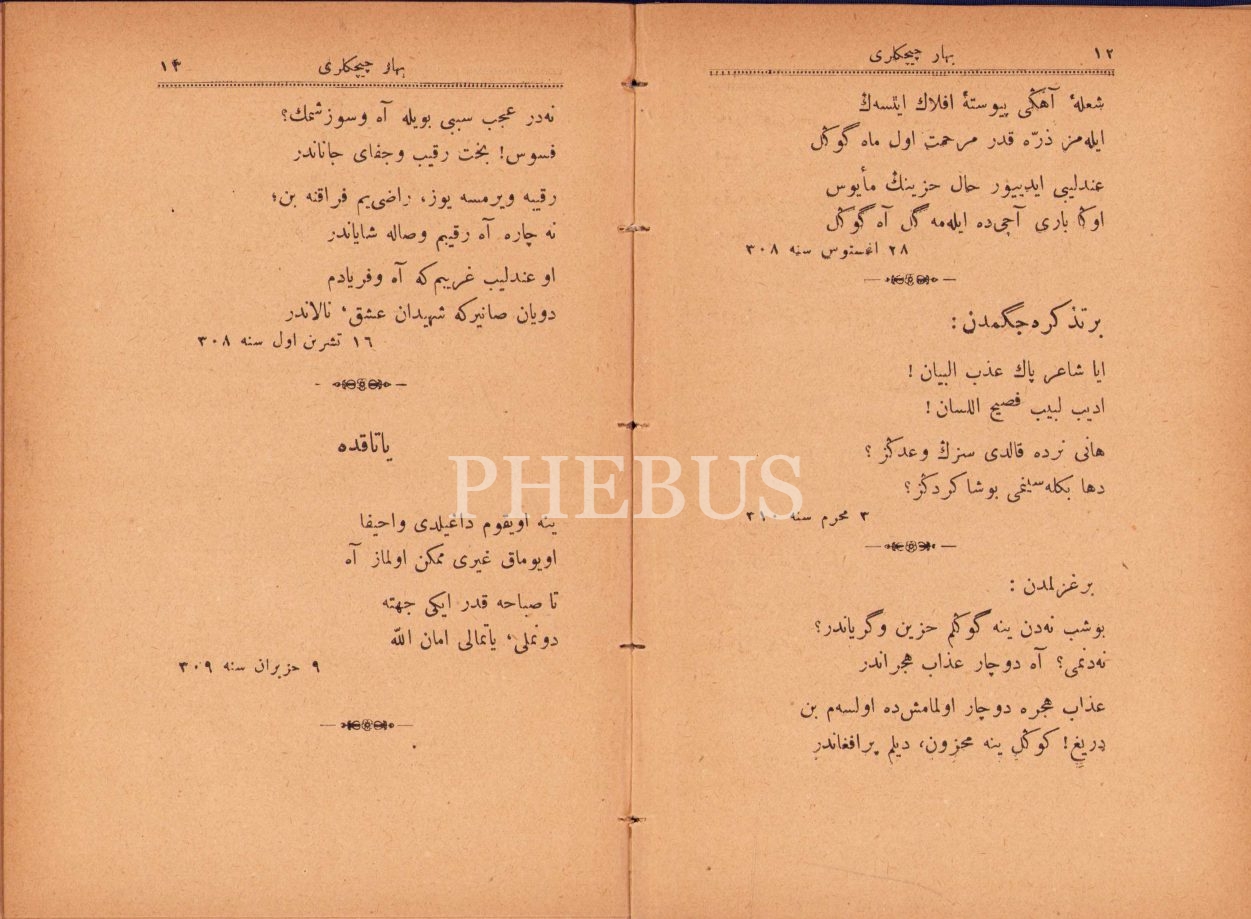 ١٢
بهار چیچكلری
شعلهٔ آهڭی پیوستهٔ افلاك ایتسه‌ڭ
ایله‌مز ذرّه قدر مرحمت اول ماه گوڭل
عندلیبی ایدییور حال حزینڭ مأیوس
اوڭا باری آچی‌ده ایله‌مه گل آه گوڭل
٢٨ اغستوس سنه ٣٠٨
بر تذكره‌جگمدن :
ایا شاعر پاك عذب البیان !
ادیب لبیب فصیح اللسان !
هانی نرده قالدی سزڭ وعدڭز ؟
دها بكله‌سینمی بو شاكردڭز ؟
٣ محرم سنه ٣١٠
بر غزلمدن :
بو شب نه‌دن ینه گوڭلم حزین و گریاندر؟
نه‌دنمی؟ آه دوچار عذاب هجراندر
عذاب هجره دوچار اولمامش‌ده اولسه‌م بن
دریغ! كوڭل ینه محزون، دیلم پر افغاندر
بهار چیچكلری
١٣
نه‌در عجب سببی بویله آه و سوزشمك؟
فسوس! بخت رقیب و جفای جاناندر
رقیبه ویرمسه یوز، راضی‌یم فراقنه بن؛
نه چاره آه رقیبم وصاله شایاندر
او عندلیب غریبم‌كه آه و فریادم
دویان صانیركه شهیدان عشق، نالاندر
١٦ تشرین اول سنه ٣٠٨
یاتاقده
ینه اویقوم داغیلدی واحیفا
اویوماق غیری ممكن اولماز آه
تا صباحه قدر ایكی جهته
دونملی، یاتمالی امان اللّه
٩ حزیران سنه ٣٠٩
PHEBUS